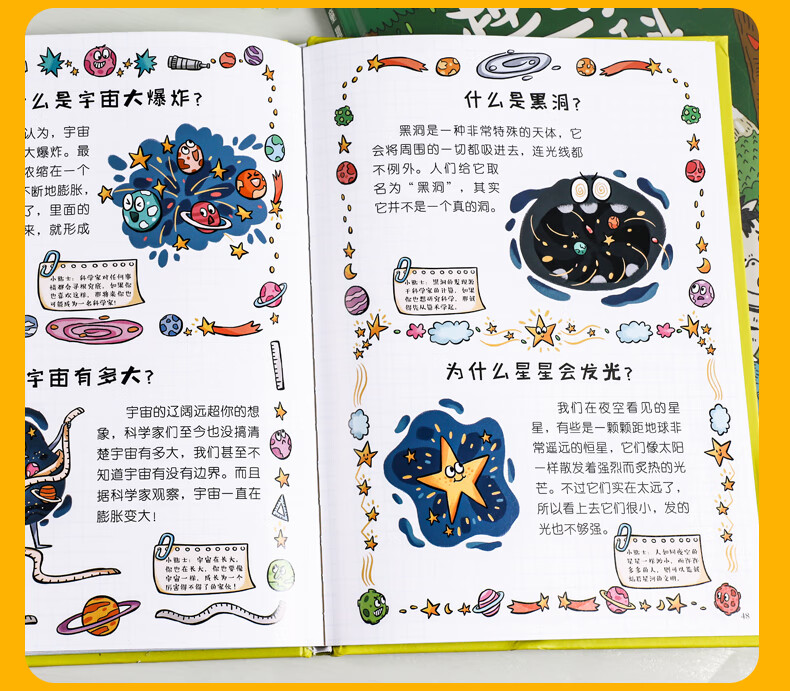 么是宇宙大爆炸?
认为，宇宙
大爆炸。最
浓缩在一个
不断地膨胀，
了，里面的
来，就形成
小贴士：科学家对任何事
情都会寻根究底，如果你
也喜欢这样，那将来你也
可能成为一名科学家！
宇宙有多大?
宇宙的辽阔远超你的想
象，科学家们至今也没搞清
楚宇宙有多大，我们甚至不
知道宇宙有没有边界。而且
据科学家观察，宇宙一直在
膨胀变大！
小贴士：宇宙在长大，
你也在长大，你也要像
宇宙一样，成长为一个
厉害得不得了的家伙！
什么是黑洞?
黑洞是一种非常特殊的天体，它
会将周围的一切都吸进去，连光线都
不例外。人们给它取
名为“黑洞”，其实
它并不是一个真的洞。
小贴士：黑洞的发现源
于科学家的计算，如果
你也想研究科学，那就
得先从算术学起。
为什么星星会发光?
我们在夜空看见的星
星，有些是一颗颗距地球非
常遥远的恒星，它们像太阳
一样散发着强烈而炙热的光
芒。不过它们实在太远了，
所以看上去它们很小，发的
光也不够强。
小贴士：人如同夜空的
星星一样渺小，而许许
多多的人，则可以
星河的文明。
48